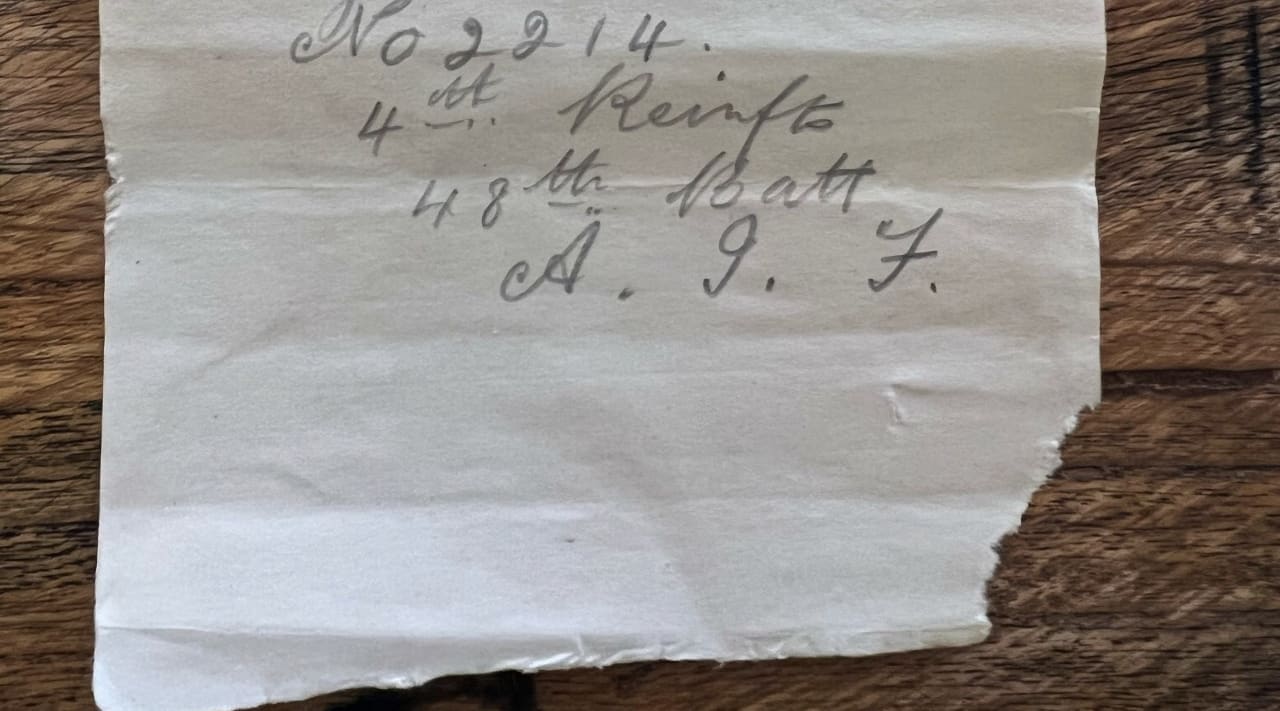 No 2214.
4th Reinfts
48th Batt
A. I. F.